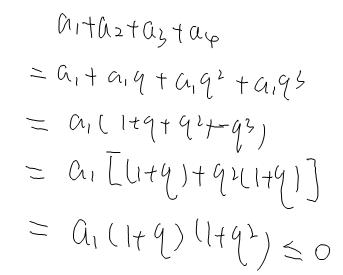 a₁+a₂+a₃+a₄
= a₁+a₁q+a₁q²+a₁q³
= a₁(1+q+q²+q³)
= a₁[(1+q)+q²(1+q)]
= a₁(1+q)(1+q²)≤0